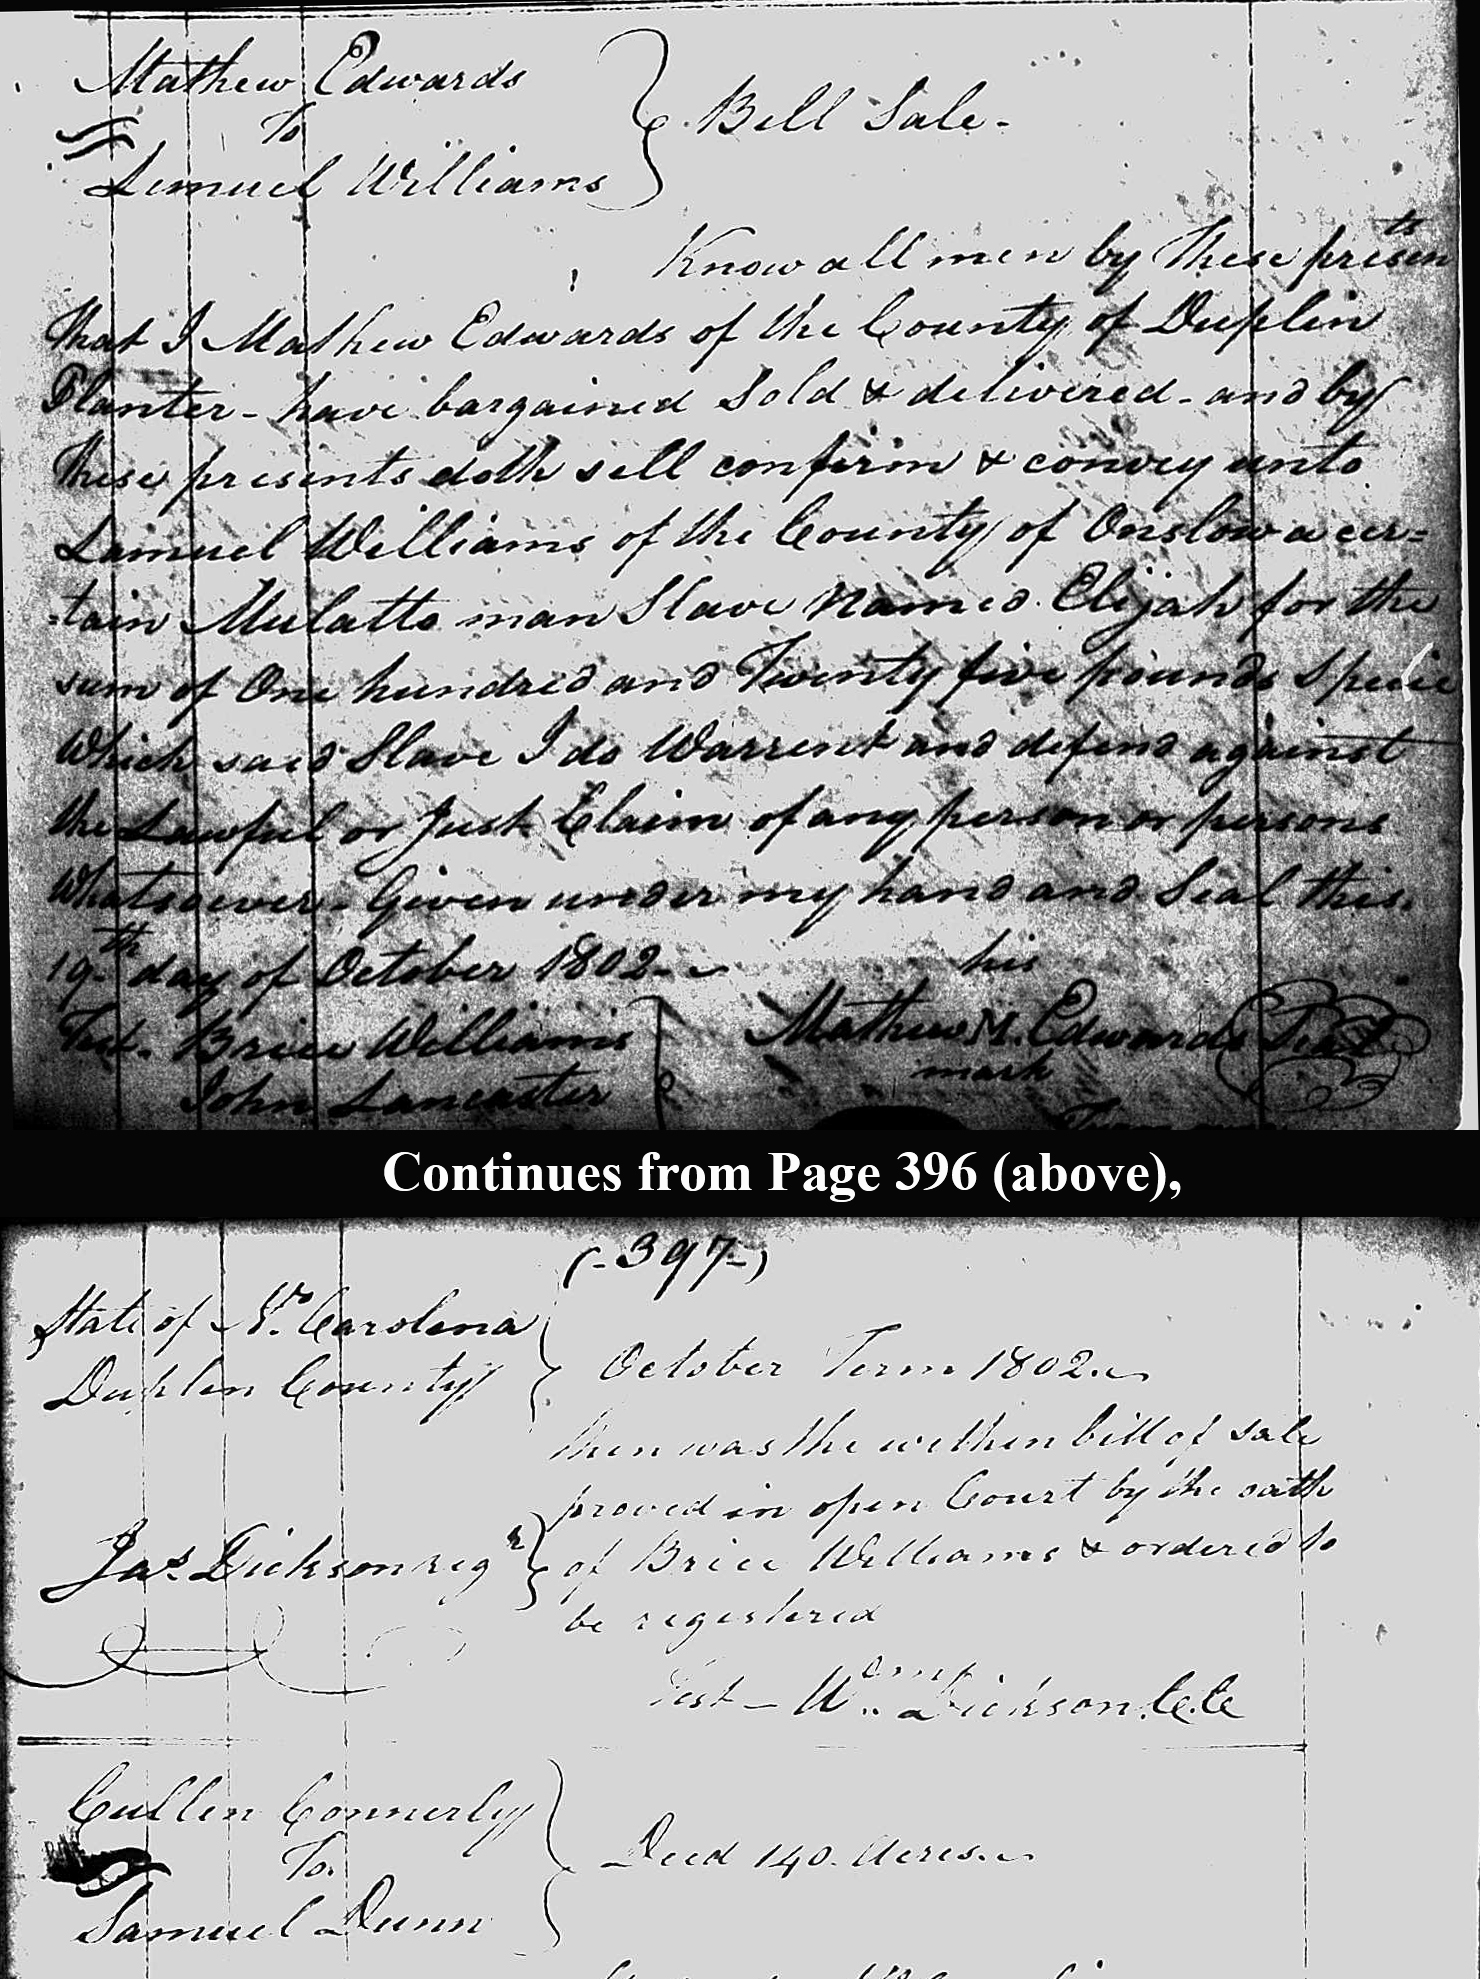 Mathew Edwards
To
Lemuel Williams
Bill Sale-
Know all men by these presen
ts
that I Mathew Edwards of the County of Duplin
Planter - have bargained Sold & delivered - and by
these presents doth sell confirm & convey unto
Lamuel Williams of the County of Onslow a cer=
=tain Mulatto man Slave Named Elijah for the
sum of One hundred and Twenty five pounds Specie
Which said Slave I do Warrent and defend against
the Lawful or Just Claim of any person or persons
Whatsoever - Given under my hand and Seal this
19th day of October 1802
his
Test. Brice Williams
Mathew M. Edwards Seal
mark
John Lancaster
Continues from Page 396 (above),
(-397-)
State of No. Carolina
Duplin County
October Term 1802
then was the within bill of sale
proved in open Court by the oath
Jas. Dickson regr
of Brice Williams & ordered to
be registered
Test - Wm. Dickson C.C.
Cullen Connerly
To.
Samuel Dunn
Deed 140. Acres.